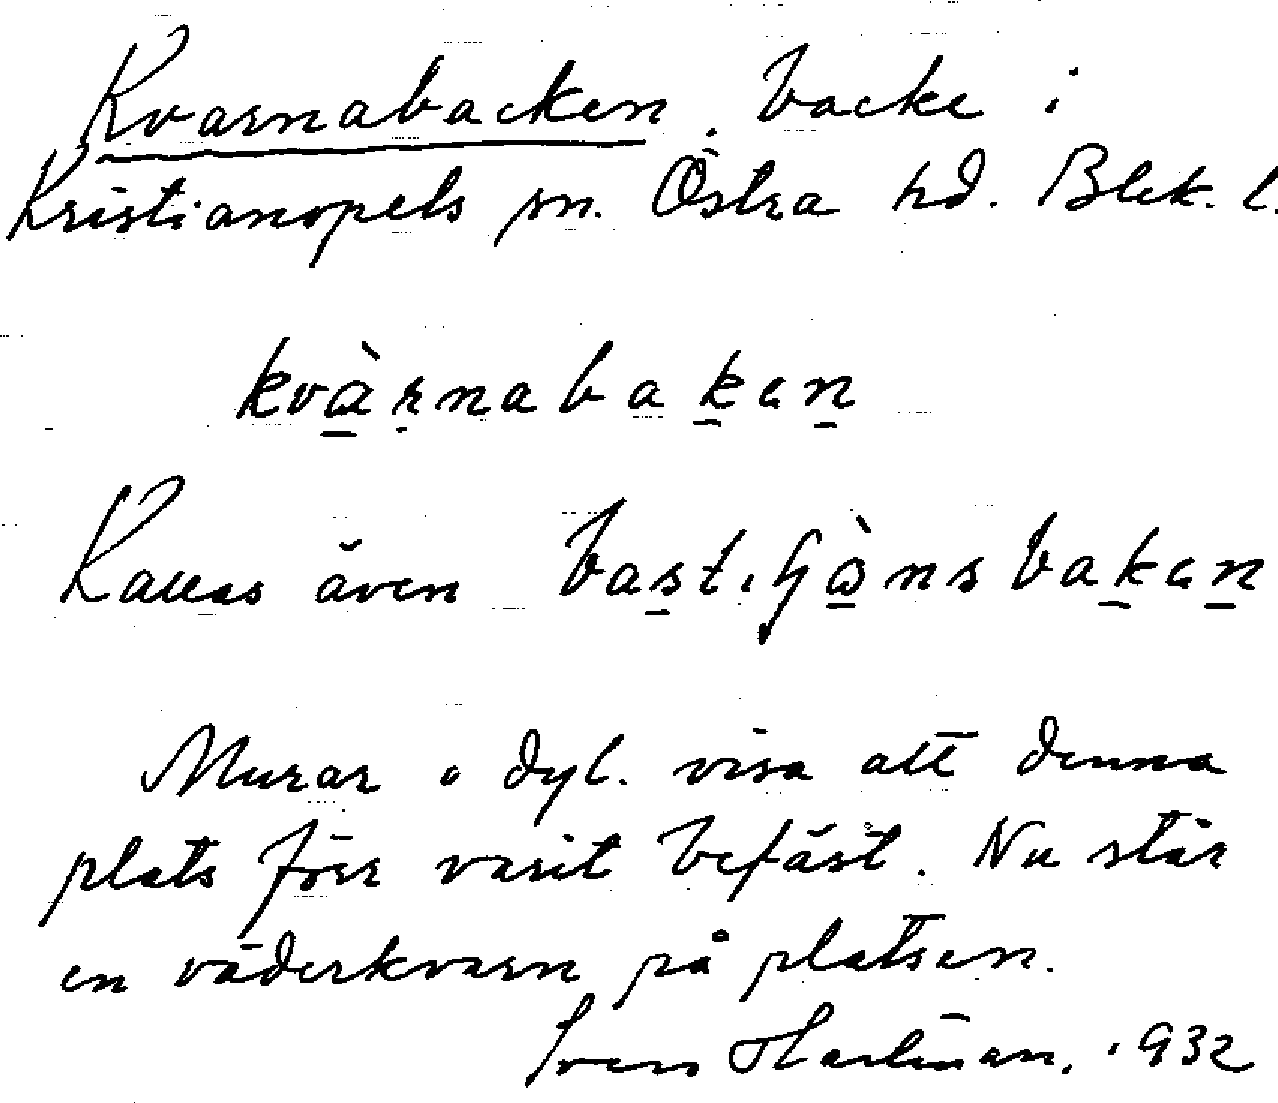 Kvarnabacken, backe i
Kristianopels sn. Östra hd. Blek. l.
kvàrnabaken
Kallas även bastiòns baken
Murar o dyl. visa att denna
plats förr varit befäst. Nu står
en väderkvarn på platsen.
Ivars Hartman. 1932